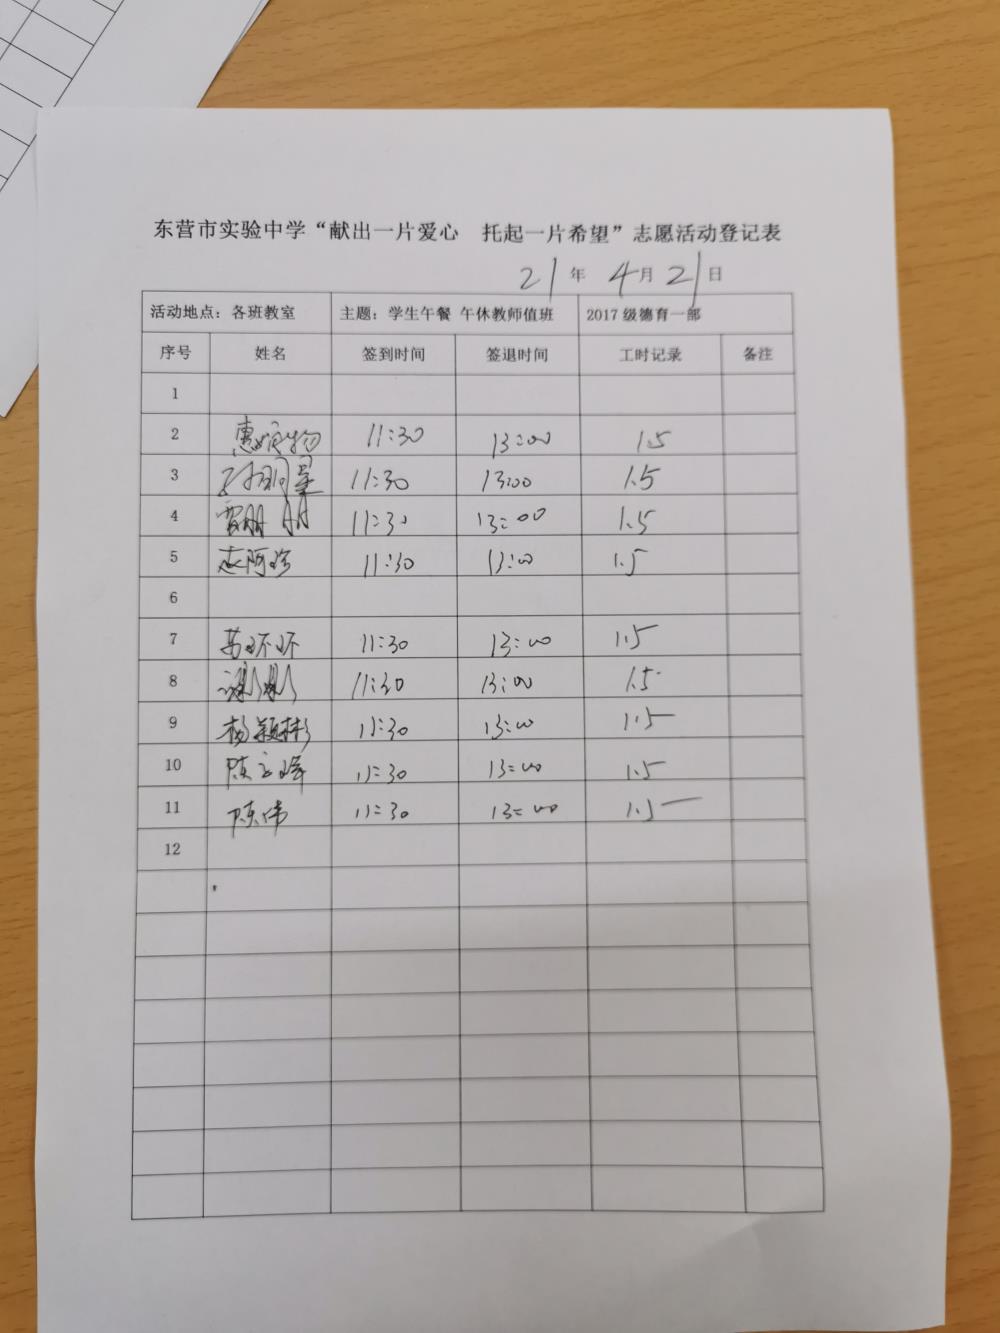 东营市实验中学“献出一片爱心 托起一片希望”志愿活动登记表
21年 4月21日
活动地点：各班教室 主题：学生午餐 午休教师值班 2017级德育一部
序号 姓名 签到时间 签退时间 工时记录 备注
1
2 11:30 13:00 1.5
3 11:30 13:00 1.5
4 11:30 13:00 1.5
5 11:30 13:00 1.5
6
7 苏环环 11:30 13:00 1.5
8 11:30 13:00 1.5
9 杨颖彬 11:30 13:00 1.5
10 陈立峰 11:30 13:00 1.5
11 陈伟 11:30 13:00 1.5
12